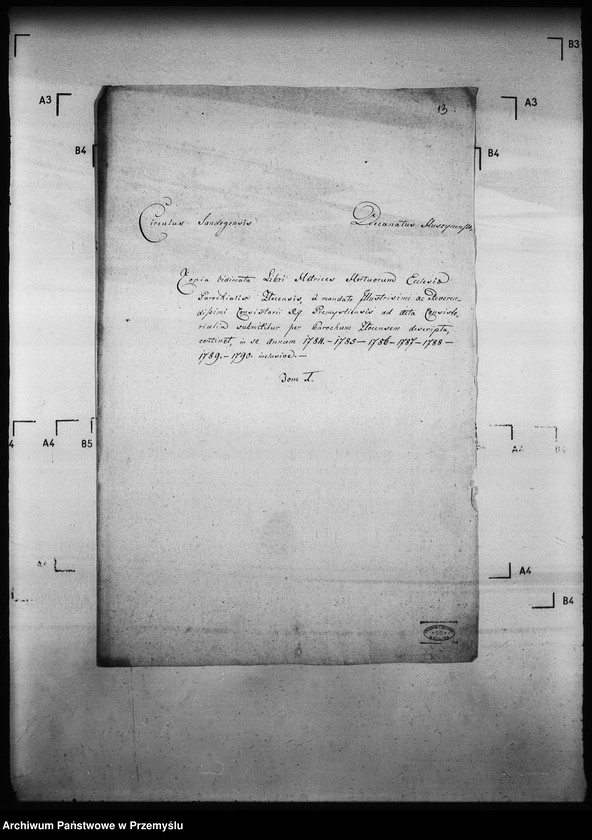 13
B3
A3
A3
B4
B4
Circulus Sandecensis
Decanatus Muszynensis
Copia Vidimata Libri Metrices Mortuorum Ecclesiæ
Parochialis Flocensis, è mandato Illustrissimi ac Reveren-
dissimi Consistorii Premysliensis ad acta Consisto-
rialia submittitur per Parochum descripta,
continet, in se Annum 1784.-1785-1786-1787-1788-
1789.-1790. inclusive.-
Tom I.
A4
A4
B5
A4
B4
A4
B4
Archiwum Państwowe w Przemyślu